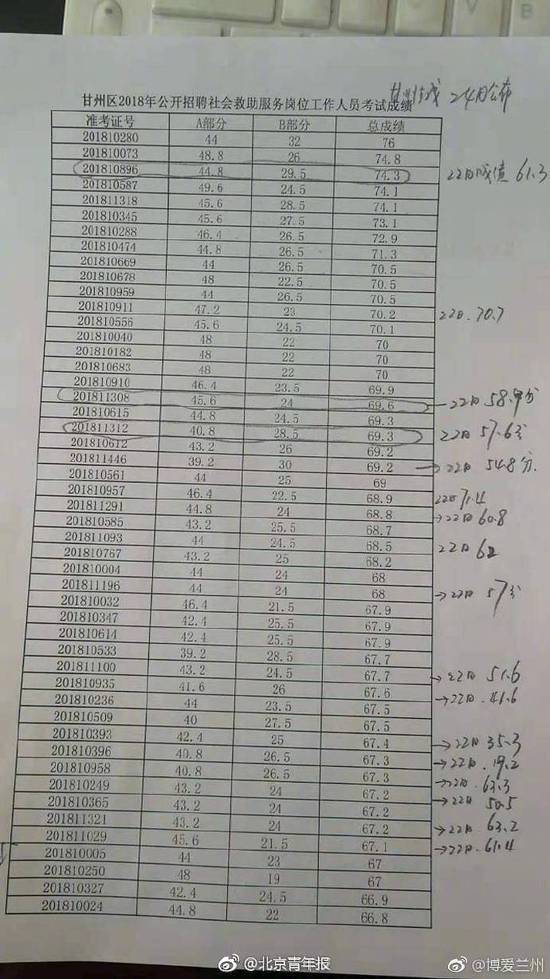 甘州区2018年公开招聘社会救助服务岗位工作人员考试成绩
24日公布
准考证号 A部分 B部分 总成绩
201810280 44 32 76
201810073 48.8 26 74.8
201810896 44.8 29.5 74.3 22日成绩 61.3
201810587 49.6 24.5 74.1
201811318 45.6 28.5 74.1
201810345 45.6 27.5 73.1
201810288 46.4 26.5 72.9
201810474 44.8 26.5 71.3
201810669 44 26.5 70.5
201810678 48 22.5 70.5
201810959 44 26.5 70.5
201810911 47.2 23 70.2 22日.70.7
201810556 45.6 24.5 70.1
201810040 48 22 70
201810182 48 22 70
201810683 48 22 70
201810910 46.4 23.5 69.9
201811308 45.6 24 69.6 22日 58.9分
201810615 44.8 24.5 69.3
201811312 40.8 28.5 69.3 22日 57.6分
201810612 43.2 26 69.2
201811446 39.2 30 69.2 →22日 54.8分.
201810561 44 25 69
201810957 46.4 22.5 68.9 22日71.4
201811291 44.8 24 68.8 →22日 60.8
201810585 43.2 25.5 68.7
201811093 44 24.5 68.5 22日
201810767 43.2 25 68.2
201810004 44 24 68
201811196 44 24 68 →22日 57分
201810032 46.4 21.5 67.9
201810347 42.4 25.5 67.9
201810614 42.4 25.5 67.9
201810533 39.2 28.5 67.7
201811100 43.2 24.5 67.7 →22日 51.6
201810935 41.6 26 67.6 →22日.41.6
201810236 44 23.5 67.5
201810509 40 27.5 67.5
201810393 42.4 25 67.4 →22日 35.3
201810396 40.8 26.5 67.3 →22日.19.2
201810958 40.8 26.5 67.3 →22日.63.3
201810249 43.2 24 67.2 →22日 50.5
201810365 43.2 24 67.2
201811321 43.2 24 67.2 →22日 63.2
201811029 45.6 21.5 67.1 →22日.61.4
201810005 44 23 67
201810250 48 19 67
201810327 42.4 24.5 66.9
201810024 44.8 22 66.8
@北京青年报
@博爱兰州